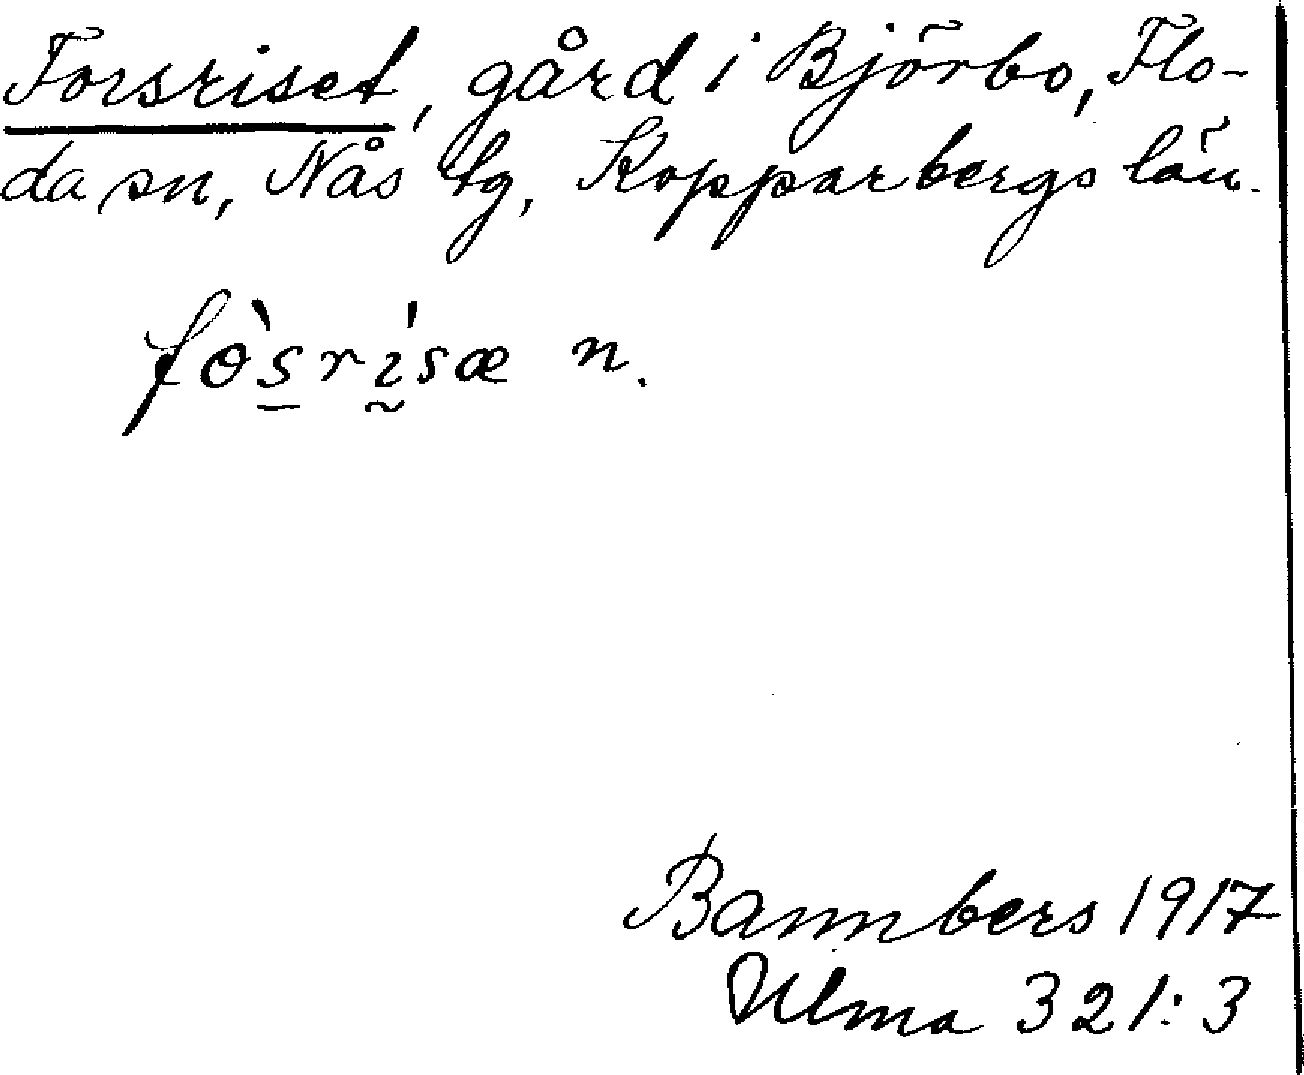 Forsriset, gård i Björbo, Flo-
da sn, Nås tg, Kopparbergs län.
fo`sri'sæ n.
Bannbers 1917
Ulma 321:3